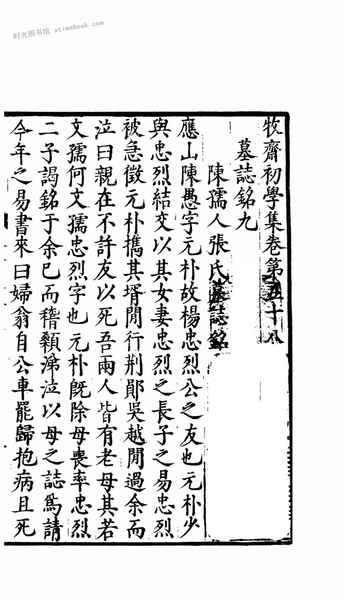 时光图书馆 atimebook.com
牧齋初學集卷第五十八
墓誌銘九
陳孺人張氏墓誌銘
應山陳愚字元朴故楊忠烈公之友也元朴少
與忠烈結交以其女妻忠烈之長子之易忠烈
被急徵元朴攜其壻閒行荆鄖吳越閒過余而
泣曰親在不許友以死吾兩人皆有老母其若
文孺何文孺忠烈字也元朴旣除母喪率忠烈
二子謁銘于余已而稽顙涕泣以母之誌爲請
今年之易書來曰婦翁自公車罷歸抱病且死